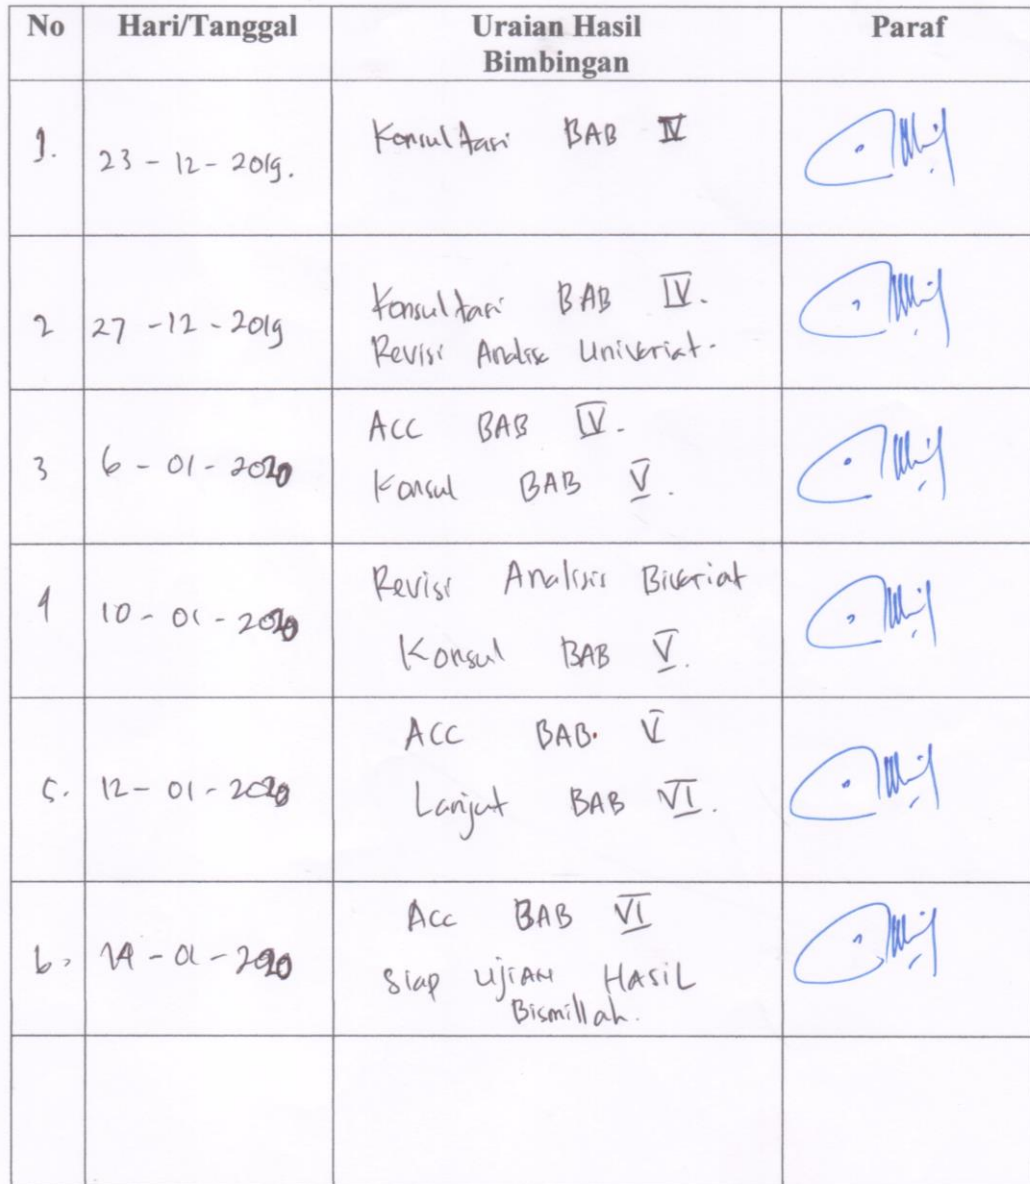 No Hari/Tanggal Uraian Hasil Bimbingan Paraf
1. 23 - 12 - 2019. Konsultasi BAB IV
2 27 - 12 - 2019 Konsultasi BAB IV.
Revisi Analisa Univariat.
3 6 - 01 - 2020 ACC BAB IV.
Konsul BAB V.
4 10 - 01 - 2020 Revisi Analisis Bivariat
Konsul BAB V.
5. 12 - 01 - 2020 ACC BAB. V
Lanjut BAB VI.
6. 14 - 01 - 2020 Acc BAB VI
Siap UJIAN HASIL
Bismillah.